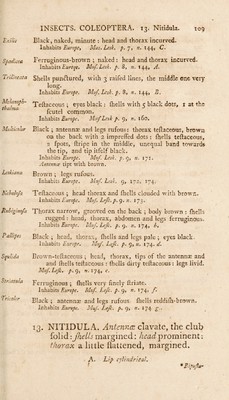 INSECTS. COLEOPTERA. 13. Nitidula. 109
Exilis Black, naked, minute: head and thorax incurved.
Inhabits Europe. Mus. Lesk. p. 7, n. 144, C.
Ferruginous-brown; naked: head and thorax incurved.
Inhabits Europe. Mus. Lesk. p. 8, n. 144, A.
Shells punctured, with 3 raised lines, the middle one very
long.
Inhabits Europe. Mus. Lesk. p. 8, n. 144, B.
Melanoph-
thalmus
Testaceous; eyes black; shells with 5 black dots, 1 at the
scutel common.
Inhabits Europe. Mus. Lesk. p. 9, n. 160.
Multicolor Black; antennæ and legs rufous: thorax testaceous, brown
on the back with 2 impressed dots; shells testaceous,
2 spots, stripe in the middle, unequal band towards
the tip, and tip itself black.
Inhabits Europe. Mus. Lesk. p. 9, n. 171.
Antennæ tips with brown.
Leskiana Brown; legs rufous.
Inhabits Europe. Mus. Lesk. 9, 172, 173.
Nebulosa Testaceous; head thorax and shells clouded with brown.
Inhabits Europe. Mus. Lesk. p. 9. n. 173.
Rubiginosa Thorax narrow, grooved on the back; body brown: shells
rugged: head, thorax, abdomen and legs ferruginous.
Inhabits Europe. Mus. Lesk. p. 9, n. 174, b.
Pallipes Black; head, thorax, shells and legs pale; eyes black.
Inhabits Europe. Mus. Lesk. p. 9, n. 174. d.
Squalida Brown-testaceous; head, thorax, tips of the antennæ and
and shells testaceous: shells dirty testaceous: legs livid.
Mus. Lesk. p. 9, n. 174, e.
Striatula Ferruginous; shells very finely striate.
Inhabits Europe. Mus. Lesk. p. 9, n. 174, f.
Tricolor Black; antennæ and legs rufous shells reddish-brown.
Inhabits Europe. Mus. Lesk. p. 9, n. 174 g.
13. NITIDULA. Antennæ clavate, the club
solid: shells margined: head prominent:
thorax a little flattened, margined.
A. Lip cylindrical.